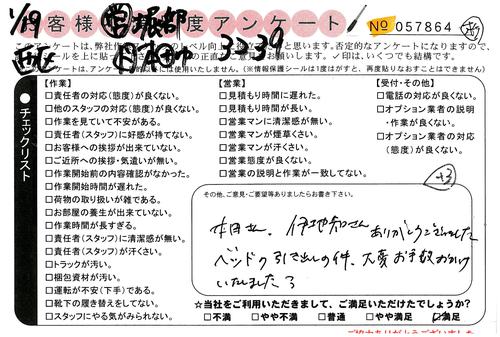 1/19
お客様満足度アンケート
No 057864
33-39
このアンケートは、弊社作
レベル向上に役立
と思います。否定的なアンケートになりますので、
シールを上に貼って
の正直なご意見
お願いします。✓印は、いくつでも結構です。
※アンケートは、
以外には使用いたしません。(※情報保護シールは1度はがすと、再度貼りなおすことはできません。)
チェックリスト
【作業】
□責任者の対応(態度)が良くない。
□他のスタッフの対応(態度)が良くない。
□作業を見ていて不安がある。
□責任者(スタッフ)に好感が持てない。
□お客様への挨拶が出来ていない。
□ご近所への挨拶・気遣いが無い。
□作業開始前の内容確認がなかった。
□作業開始時間が遅れた。
□荷物の取り扱いが雑である。
□お部屋の養生が出来ていない。
□作業時間が長すぎる。
□責任者(スタッフ)に清潔感が無い。
□責任者(スタッフ)が汗くさい。
□トラックが汚い。
□梱包資材が汚い。
□運転が不安(下手)である。
□靴下の履き替えをしてない。
□スタッフにやる気がみられない。
【営業】
□見積もり時間に遅れた。
□見積もり時間が長い。
□営業マンに清潔感が無い。
□営業マンが煙草くさい。
□営業マンが汗くさい。
□営業態度が良くない。
□営業の説明と作業が一致してない。
【受付・その他】
□電話の対応が良くない。
□オプション業者の説明
・作業が良くない。
□オプション業者の対応
(態度)が良くない。
+3
その他、ご意見・ご要望等ありましたらお書き下さい。
本田さん、伊地知さん ありがとうございました
ベッドの引き出しの件、大変お手数おかけ
いたしました
☆当社をご利用いただきまして、ご満足いただけたでしょうか?
□不満 □やや不満 □普通 □やや満足 ☑満足
ご協力ありがとうございました